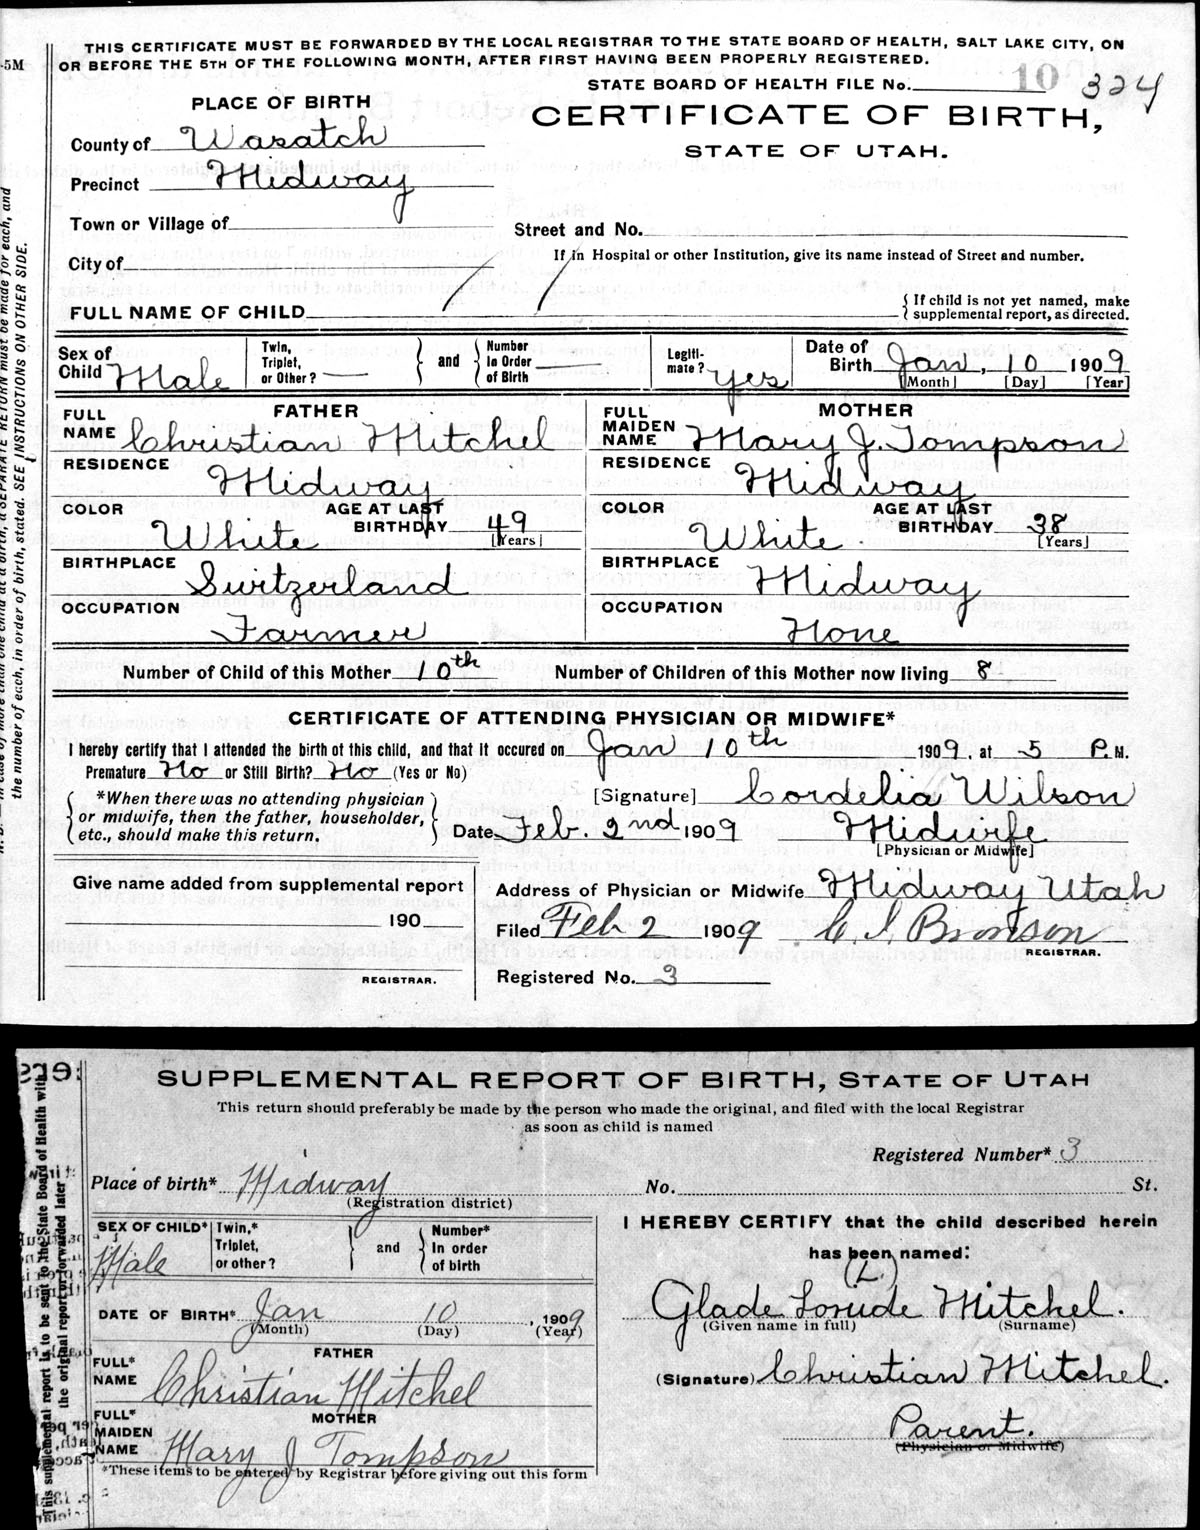 THIS CERTIFICATE MUST BE FORWARDED BY THE LOCAL REGISTRAR TO THE STATE BOARD OF HEALTH, SALT LAKE CITY, ON
OR BEFORE THE 5TH OF THE FOLLOWING MONTH, AFTER FIRST HAVING BEEN PROPERLY REGISTERED.
5M
STATE BOARD OF HEALTH FILE No. 10 324
PLACE OF BIRTH
CERTIFICATE OF BIRTH,
STATE OF UTAH.
County of Wasatch
Precinct Midway
Town or Village of
Street and No.
City of
If in Hospital or other Institution, give its name instead of Street and number.
FULL NAME OF CHILD
{ If child is not yet named, make
supplemental report, as directed.
Sex of Child Male
Twin, Triplet, or Other? —
and
Number In Order of Birth
Legiti-mate? yes
Date of Birth Jan, 10 1909
[Month] [Day] [Year]
FATHER
FULL NAME Christian Mitchel
RESIDENCE Midway
COLOR White
AGE AT LAST BIRTHDAY 49 [Years]
BIRTHPLACE Switzerland
OCCUPATION Farmer
MOTHER
FULL MAIDEN NAME Mary J. Tompson
RESIDENCE Midway
COLOR White
AGE AT LAST BIRTHDAY 38 [Years]
BIRTHPLACE Midway
OCCUPATION None
Number of Child of this Mother 10th Number of Children of this Mother now living 8
CERTIFICATE OF ATTENDING PHYSICIAN OR MIDWIFE*
I hereby certify that I attended the birth of this child, and that it occured on Jan 10th 1909, at 5 P.M.
Premature No or Still Birth? No (Yes or No)
*When there was no attending physician
or midwife, then the father, householder,
etc., should make this return.
[Signature] Cordelia Wilson
Date Feb. 2nd 1909 Midwife
[Physician or Midwife]
Give name added from supplemental report
190
REGISTRAR.
Address of Physician or Midwife Midway Utah
Filed Feb 2 1909 C. I. Bronson
REGISTRAR.
Registered No. 3
In case of more than one child at a birth, a SEPARATE RETURN must be made for each, and
the number of each, in order of birth, stated. SEE INSTRUCTIONS ON OTHER SIDE.
SUPPLEMENTAL REPORT OF BIRTH, STATE OF UTAH
This return should preferably be made by the person who made the original, and filed with the local Registrar
as soon as child is named
Registered Number* 3
Place of birth* Midway No. St.
(Registration district)
SEX OF CHILD* Male
Twin,* Triplet, or other?
and
Number* In order of birth
DATE OF BIRTH* Jan 10, 1909
(Month) (Day) (Year)
FATHER
FULL* NAME Christian Mitchel
MOTHER
FULL* MAIDEN NAME Mary J Tompson
*These items to be entered by Registrar before giving out this form
I HEREBY CERTIFY that the child described herein
has been named:
(L.)
Glade Lorude Mitchel.
(Given name in full) (Surname)
(Signature) Christian Mitchel.
Parent.
(Physician or Midwife)
This supplemental report is to be sent to the State Board of Health with
the original report or forwarded later